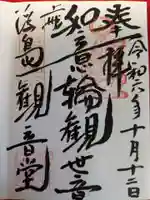 奉拝
令和六年十月十二日
如意輪観世音
上州
浮島観音堂